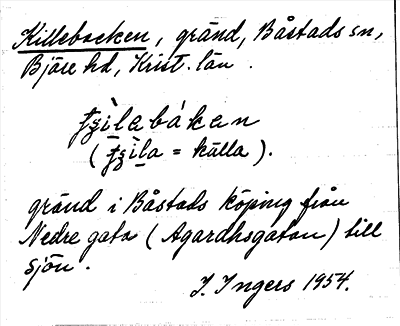 Killebacken, gränd, Båstads sn,
Bjäre hd, Krist. län.
(= källa).
gränd i Båstads köping från
Nedre gata (Agardhsgatan) till
sjön.
I. Ingers 1954.